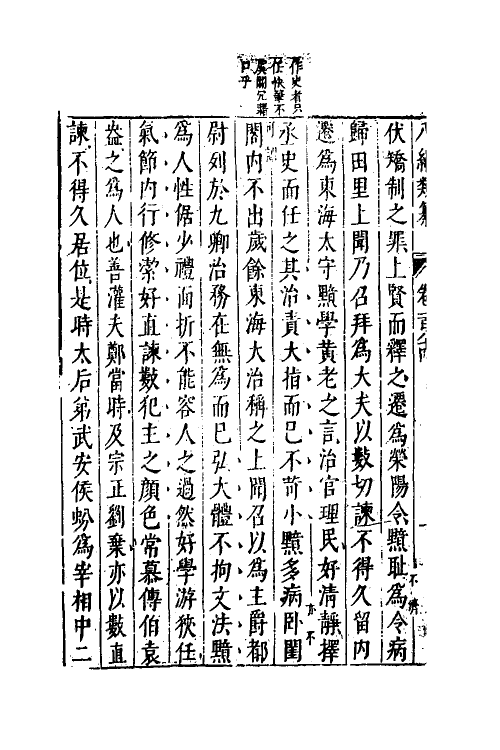 作史者只
任快筆不
冗
口乎
八編類纂 卷百
伏矯制之罪上賢而釋之遷爲滎陽令黯耻爲令病
歸田里上聞乃召拜爲大夫以數切諫不得久留内
遷爲東海太守黯學黃老之言治官理民好清靜擇
丞史而任之其治責大指而已不苛小黯多病卧閨
閤内不出歲餘東海大治稱之上聞召以爲主爵都
尉列於九卿治務在無爲而已弘大體不拘文法黯
爲人性倨少禮面折不能容人之過然好學游俠任
氣節内行修潔好直諫數犯主之顏色常慕傅伯袁
盎之爲人也善灌夫鄭當時及宗正劉棄亦以數直
諫不得久居位是時太后弟武安侯蚡爲宰相中二